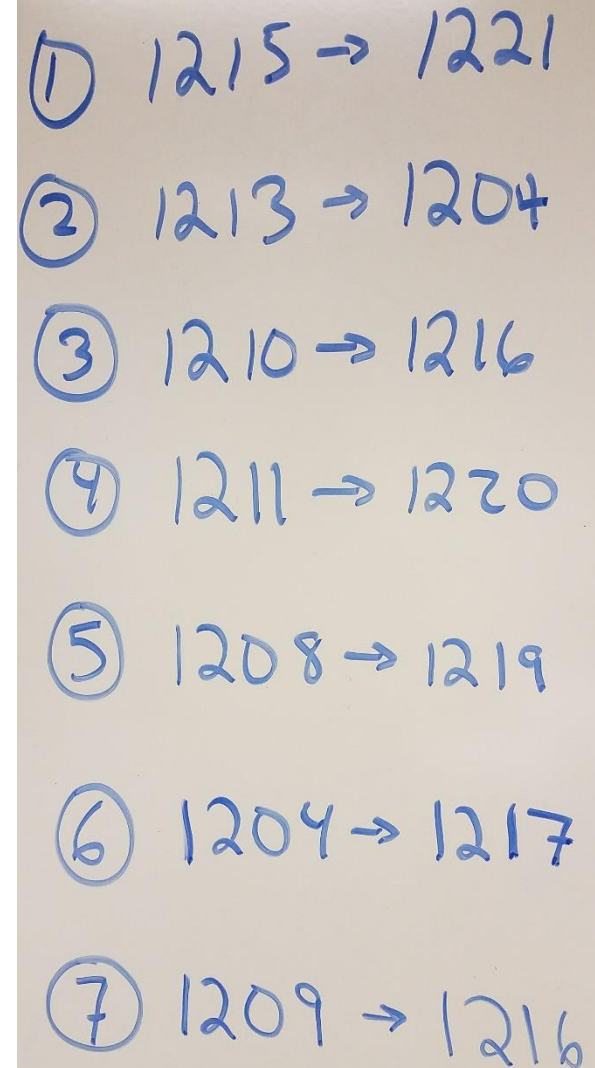 ① 1215 → 1221
② 1213 → 1204
③ 1210 → 1216
④ 1211 → 1220
⑤ 1208 → 1219
⑥ 1204 → 1217
⑦ 1209 → 1216